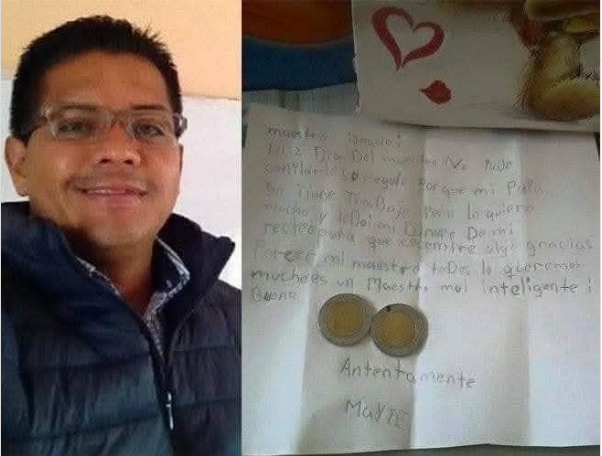 maestro ignacio!
feliz Dia Del maestro No Pude
comprarle su regalo Porque mi Papa
no Tiene TraBajo Pero lo quiero
mucho y leDoi mi Dinero De mi
recreo para que se compre algo gracias
Por ser mi maestro toDos lo queremos
mucho es un Maestro mui inteligente i
Bueno
Antentamente
Mayte